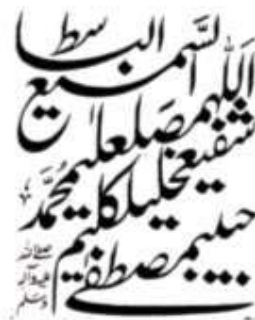 السميع الباسط
اللهم صل على
شفيع خليل كليم محمد
حبيب مصطفى
صلى الله
عليه وآله
وسلم